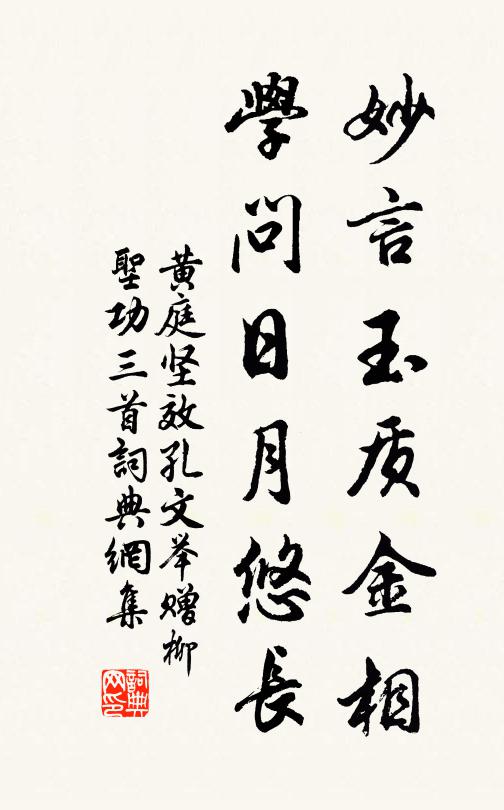 妙言玉质金相
學問日月悠長
黄庭坚效孔文举赠柳
聖功三首詞典網集
詞典网印